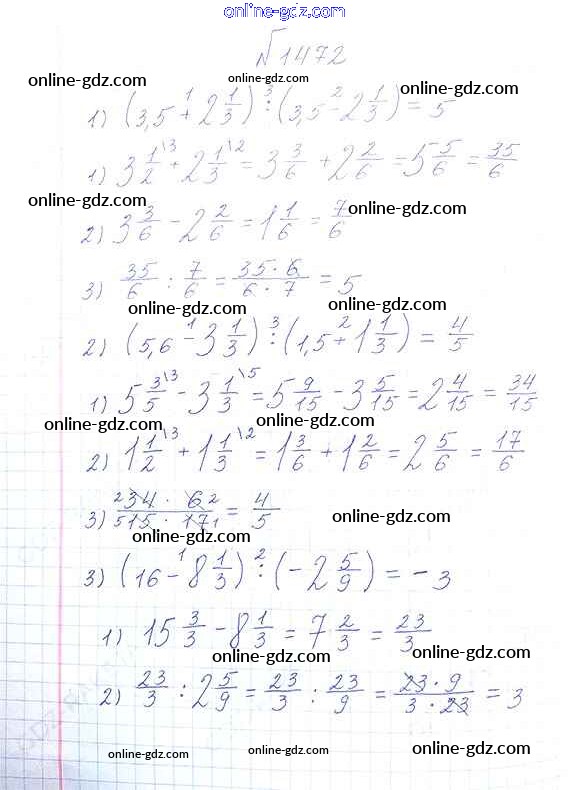 online-gdz.com
№1472
online-gdz.com online-gdz.com online-gdz.com
1) (3,5 +¹ 2 1/3) :³ (3,5 -² 2 1/3) = 5
1) 3 1/2\3 + 2 1/3\2 = 3 3/6 + 2 2/6 = 5 5/6 = 35/6
online-gdz.com online-gdz.com
2) 3 3/6 - 2 2/6 = 1 1/6 = 7/6
3) 35/6 : 7/6 = 35·6/6·7 = 5
online-gdz.com online-gdz.com
2) (5,6 -¹ 3 1/3) :³ (1,5 +² 1 1/3) = 4/5
1) 5 3/5\3 - 3 1/3\5 = 5 9/15 - 3 5/15 = 2 4/15 = 34/15
online-gdz.com online-gdz.com
2) 1 1/2\3 + 1 1/3\2 = 1 3/6 + 1 2/6 = 2 5/6 = 17/6
3) 2 34 · 6 2/5 15 · 17 1 = 4/5
online-gdz.com online-gdz.com
3) (16 -¹ 8 1/3) :² (-2 5/9) = -3
1) 15 3/3 - 8 1/3 = 7 2/3 = 23/3
online-gdz.com online-gdz.com
2) 23/3 : 2 5/9 = 23/3 : 23/9 = 23·9/3·23 = 3
online-gdz.com online-gdz.com online-gdz.com